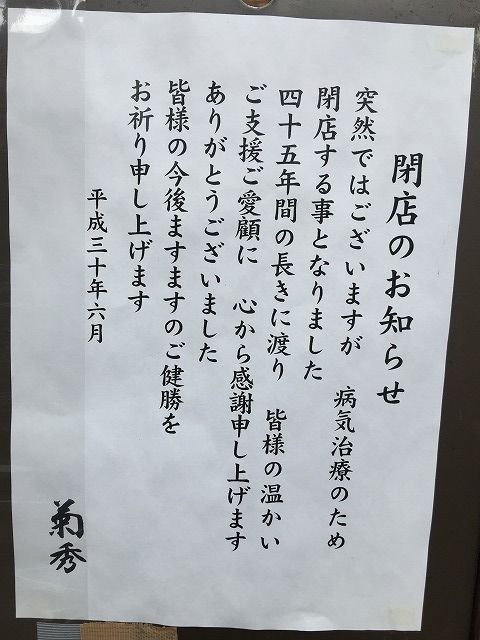 閉店のお知らせ
突然ではございますが　病気治療のため
閉店する事となりました
四十五年間の長きに渡り　皆様の温かい
ご支援ご愛顧に　心から感謝申し上げます
ありがとうございました
皆様の今後ますますのご健勝を
お祈り申し上げます
平成三十年六月
菊秀